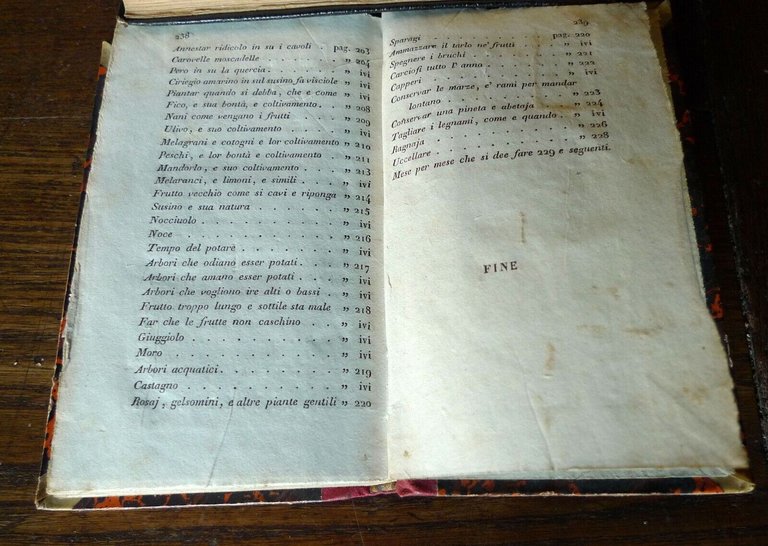 238
Annestar ridicolo in su i cavoli . pag. 203
Carovelle moscadelle . . . . . „ 204
Pero in su la quercia . . . . . „ ivi
Ciriegio amarino in sul susino fa visciole „ ivi
Piantar quando si debba, che e come „ ivi
Fico, e sua bontà, e coltivamento . „ 208
Nani come vengano i frutti . . . „ 209
Ulivo, e suo coltivamento . . . . „ ivi
Melagrani e cotogni e lor coltivamento „ 210
Peschi, e lor bontà e coltivamento . „ 211
Mandorlo, e suo coltivamento . . . „ 213
Melaranci, e limoni, e simili . . . „ ivi
Frutto vecchio come si cavi e riponga „ 214
Susino e sua natura . . . . . „ 215
Nocciuolo . . . . . . . . . „ ivi
Noce . . . . . . . . . . „ 216
Tempo del potare . . . . . . „ ivi
Arbori che odiano esser potati . . „ 217
Arbori che amano esser potati . . . „ ivi
Arbori che vogliono ire alti o bassi . „ ivi
Frutto troppo lungo e sottile sta male „ 218
Far che le frutte non caschino . . . „ ivi
Giuggiolo . . . . . . . . . „ ivi
Moro . . . . . . . . . . „ ivi
Arbori acquatici . . . . . . . „ 219
Castagno . . . . . . . . . „ ivi
Rosaj, gelsomini, e altre piante gentili „ 220
239
Sparagi . . . . . . . . pag. 220
Ammazzare il tarlo ne' frutti . . „ ivi
Spegnere i bruchi . . . . . . „ 221
Carciofi tutto l' anno . . . . . „ 222
Capperi . . . . . . . . . „ ivi
Conservar le marze, e' rami per mandar
lontano . . . . . . . . „ 223
Conservar una pineta e abetaja . . „ 224
Tagliare i legnami, come e quando . „ ivi
Ragnaja . . . . . . . . . „ 226
Uccellare . . . . . . . . . „ 228
Mese per mese che si dee fare 229 e seguenti.
FINE